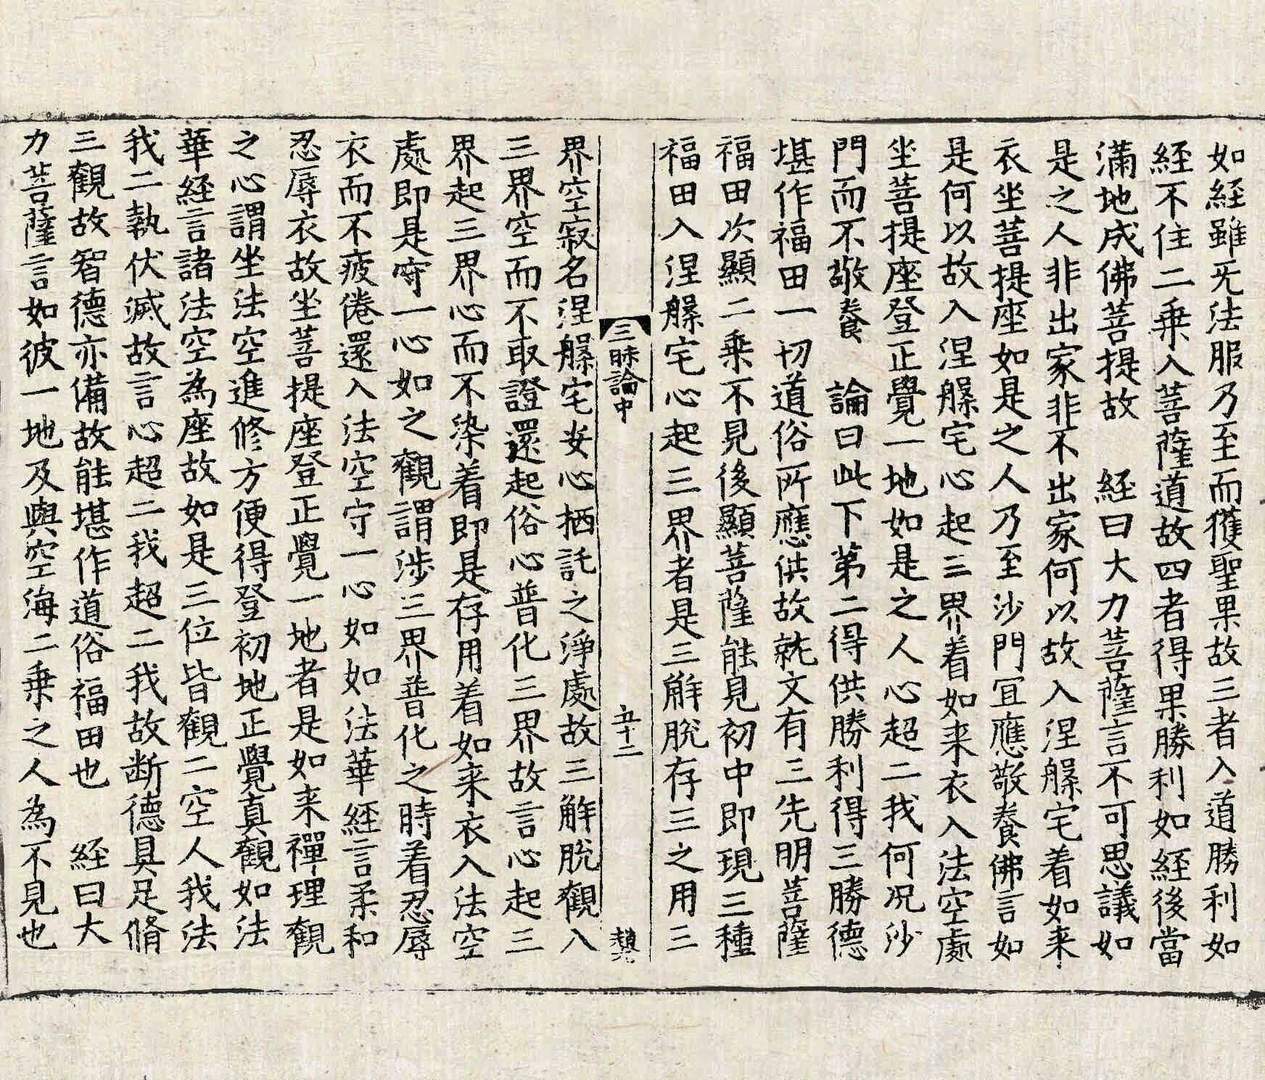 如経雖无法服乃至而獲聖果故三者入道勝利如
経不住二乗入菩薩道故四者得果勝利如経後當
滿地成佛菩提故　経曰大力菩薩言不可思議如
是之人非出家非不出家何以故入涅槃宅着如来
衣坐菩提座如是之人乃至沙門冝應敬養佛言如
是何以故入涅槃宅心起三界着如来衣入法空處
坐菩提座登正覺一地如是之人心超二我何况沙
門而不敬養　論曰此下第二得供勝利得三勝德
堪作福田一切道俗所應供故就文有三先明菩薩
福田次顯二乗不見後顯菩薩能見初中即現三種
福田入涅槃宅心起三界者是三解脫存三之用三
三昧論中　五十二　趙
界空寂名涅槃宅安心栖託之淨處故三解脫觀入
三界空而不取證還起俗心普化三界故言心起三
界起三界心而不染着即是存用着如来衣入法空
處即是守一心如之觀謂涉三界普化之時着忍辱
衣而不疲倦還入法空守一心如如法華経言柔和
忍辱衣故坐菩提座登正覺一地者是如来禪理觀
之心謂坐法空進修方便得登初地正覺真觀如法
華経言諸法空為座故如是三位皆觀二空人我法
我二執伏滅故言心超二我超二我故断德具足脩
三觀故智德亦備故能堪作道俗福田也　経曰大
力菩薩言如彼一地及與空海二乗之人為不見也